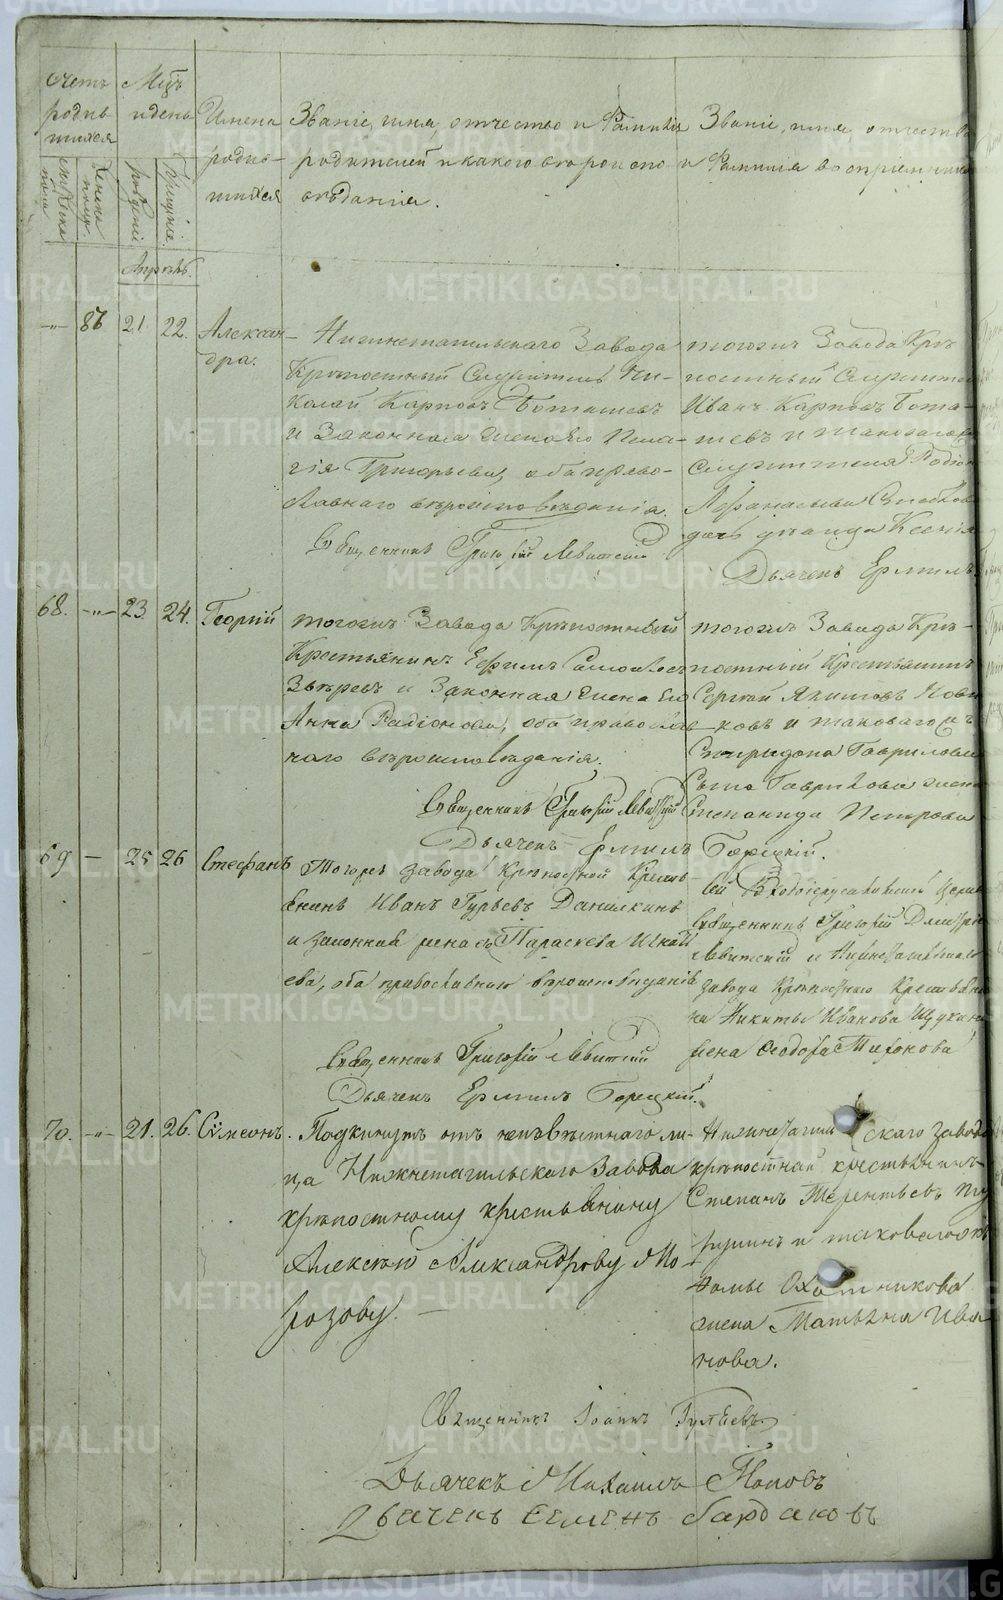 Счетъ родив- шихся
Мѣцъ и день
Имена родив- шихся
Званіе, имя, отчество и Фамилія
родителей и какого вѣроиспо-
вѣданія.
Званіе, имя отчество
и Фамилія воспріемник
мужеска пола
женска пола
рожденія
крещенія
Апрѣль.
—"— 86 21. 22. Алексан-
дра.
Нижнетагильскаго Завода
Крѣпостный Служитель Ни-
колай Карповъ Боташевъ
и Законная жена Его Пела-
гія Григорьева, оба право-
славнаго вѣроисповѣданія.
Священникъ Григорій Левитскій
тогожъ Завода Крѣ
постный Служитель
Иванъ Карповъ Бота-
шевъ и таковагожъ
Служителя Родіон
Афанасьева
дочь дѣвица Ксенія
Дьячекъ Ермилъ
68. —"— 23. 24. Георгій
тогожъ Завода Крѣпостный
Крестьянинъ Ефимъ Самойловъ
Звѣревъ и Законная жена Его
Анна Радіонова, оба православ
наго вѣроисповѣданія.
Священникъ Григорій Левитскій
Дьячекъ Ермилъ Борецкій.
тогожъ Завода Крѣ-
постный Крестьянинъ
Сергѣй Якимовъ Нови
ковъ и таковагожъ
Спиридона Гаврилова
Сына Гаврилова жена
Степанида Петрова
69 — 25 26 Стефанъ
Тогожъ завода Крѣпостной Кресть-
янинъ Иванъ Гурьевъ Данилкинъ
и законная жена его Параскева
ева, оба православнаго вѣроисповѣданія
Священникъ Григорій Левитскій
Дьячекъ Ермилъ Борецкій.
ей Входоіерусалимской Церкви
Священникъ Григорій Дмитріев
Левитскій и Нижнетагильскаго
завода Крѣпостнаго Крестьяни
на Никиты Иванова
жена Феодора Тихонова
70. —"— 21. 26. Сѵмеонъ.
Подкинутъ отъ неизвѣстнаго ли-
ца Нижнетагильскаго завода
крѣпостному крестьянину
Алексѣю Александрову Мо
розову. —
Нижнетагильскаго завода
крѣпостной крестьянинъ
Степанъ Терентьевъ
и таковагожъ
Фомы Охотникова
жена Татьяна Ива
нова.
Священникъ Іоаннъ Гуляевъ
Дьячекъ Михаилъ Поповъ
Дьячекъ Семенъ Бардаковъ
METRIKI.GASO-URAL.RU